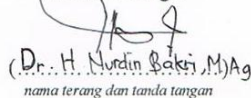 (Dr. H Nurdin Bakri, M)Ag
nama terang dan tanda tangan